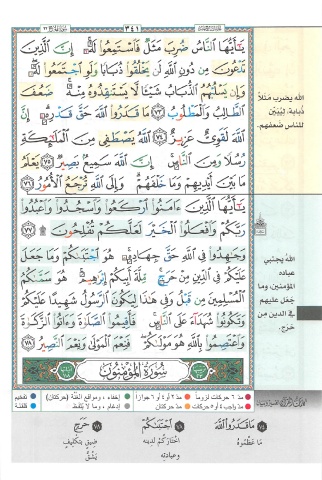 ٣٤١
يَـٰٓأَيُّهَا ٱلنَّاسُ ضُرِبَ مَثَلٌ فَٱسْتَمِعُوا۟ لَهُۥٓ ۚ إِنَّ ٱلَّذِينَ
تَدْعُونَ مِن دُونِ ٱللَّهِ لَن يَخْلُقُوا۟ ذُبَابًا وَلَوِ ٱجْتَمَعُوا۟ لَهُۥ ۖ
وَإِن يَسْلُبْهُمُ ٱلذُّبَابُ شَيْـًٔا لَّا يَسْتَنقِذُوهُ مِنْهُ ۚ ضَعُفَ
ٱلطَّالِبُ وَٱلْمَطْلُوبُ ٧٣ مَا قَدَرُوا۟ ٱللَّهَ حَقَّ قَدْرِهِۦٓ ۗ إِنَّ
ٱللَّهَ لَقَوِىٌّ عَزِيزٌ ٧٤ ٱللَّهُ يَصْطَفِى مِنَ ٱلْمَلَـٰٓئِكَةِ
رُسُلًا وَمِنَ ٱلنَّاسِ ۚ إِنَّ ٱللَّهَ سَمِيعٌۢ بَصِيرٌ ٧٥ يَعْلَمُ
مَا بَيْنَ أَيْدِيهِمْ وَمَا خَلْفَهُمْ ۗ وَإِلَى ٱللَّهِ تُرْجَعُ ٱلْأُمُورُ ٧٦
يَـٰٓأَيُّهَا ٱلَّذِينَ ءَامَنُوا۟ ٱرْكَعُوا۟ وَٱسْجُدُوا۟ وَٱعْبُدُوا۟
رَبَّكُمْ وَٱفْعَلُوا۟ ٱلْخَيْرَ لَعَلَّكُمْ تُفْلِحُونَ ۩ ٧٧
وَجَـٰهِدُوا۟ فِى ٱللَّهِ حَقَّ جِهَادِهِۦ ۚ هُوَ ٱجْتَبَىٰكُمْ وَمَا جَعَلَ
عَلَيْكُمْ فِى ٱلدِّينِ مِنْ حَرَجٍ ۚ مِّلَّةَ أَبِيكُمْ إِبْرَٰهِيمَ ۚ هُوَ سَمَّىٰكُمُ
ٱلْمُسْلِمِينَ مِن قَبْلُ وَفِى هَـٰذَا لِيَكُونَ ٱلرَّسُولُ شَهِيدًا عَلَيْكُمْ
وَتَكُونُوا۟ شُهَدَآءَ عَلَى ٱلنَّاسِ ۚ فَأَقِيمُوا۟ ٱلصَّلَوٰةَ وَءَاتُوا۟ ٱلزَّكَوٰةَ
وَٱعْتَصِمُوا۟ بِٱللَّهِ هُوَ مَوْلَىٰكُمْ ۖ فَنِعْمَ ٱلْمَوْلَىٰ وَنِعْمَ ٱلنَّصِيرُ ٧٨
سُورَةُ الْمُؤْمِنُونَ
الله يضرب مثلاً
ذبابة؛ ليُبَيّن
للناس ضعفهم.
الله يجتبي
عباده
المؤمنين، وما
جعل عليهم
في الدين من
حرج.
مد ٦ حركات لزوماً مد ٢ أو ٤ أو ٦ جوازاً إخفاء، ومواقع الغُنَّة (حركتان) تفخيم
مد واجب ٤ أو ٥ حركات مد حركتان إدغام، وما لا يُلفظ قلقلة
٧٤ مَا قَدَرُوا۟ ٱللَّهَ ٧٨ ٱجْتَبَىٰكُمْ ٧٨ حَرَجٍ
مَا عَظَّمُوهُ اخْتَارَكُمْ لدينه ضيقٍ بتكليفٍ
وعبادته يَشُقُّ